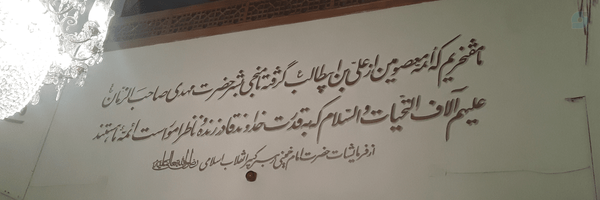 ما مفتخریم که ائمه معصومین از علی بن ابیطالب گرفته تا منجی بشر حضرت مهدی صاحب الزمان
علیهم آلاف التحیات والسلام که به قدرت خداوند قادر زنده و ناظر امور است ائمه ما هستند
از فرمایشات حضرت امام خمینی رهبر کبیر انقلاب اسلامی